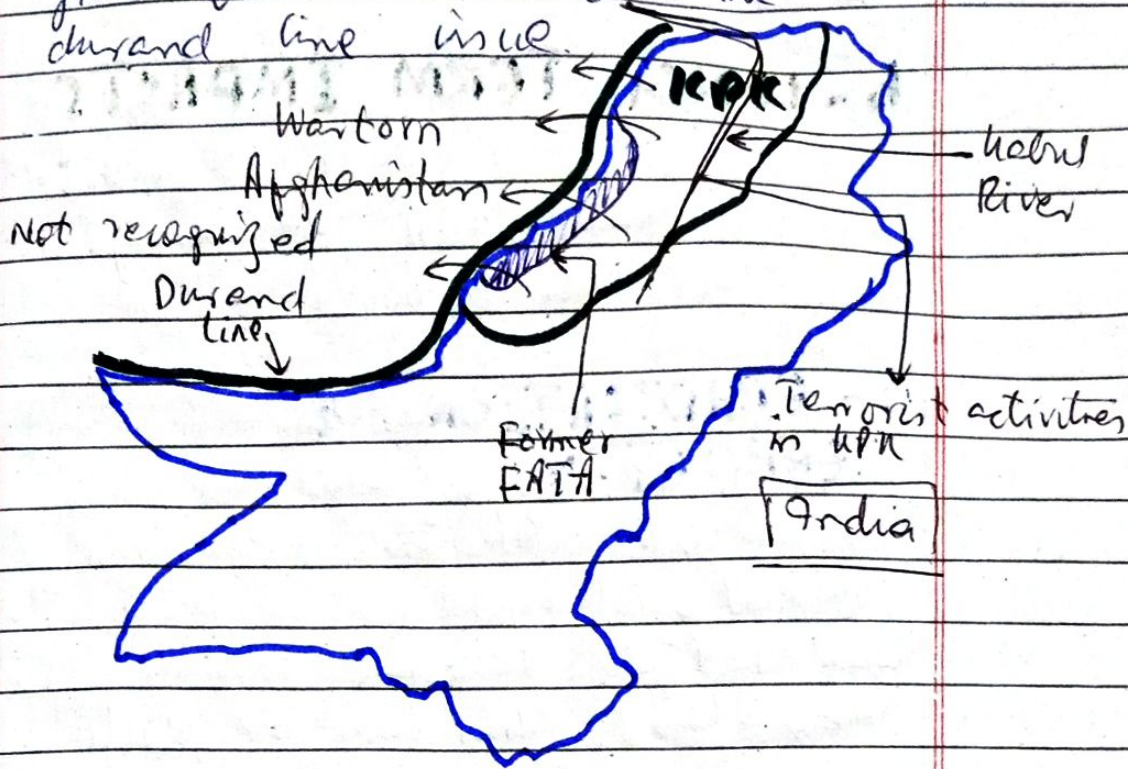 durand line issue.
KPK
Wartorn
Afghanistan
Not recognized
Durand
line
Kabul
River
Former
FATA
Terrorist activities
in KPK
India